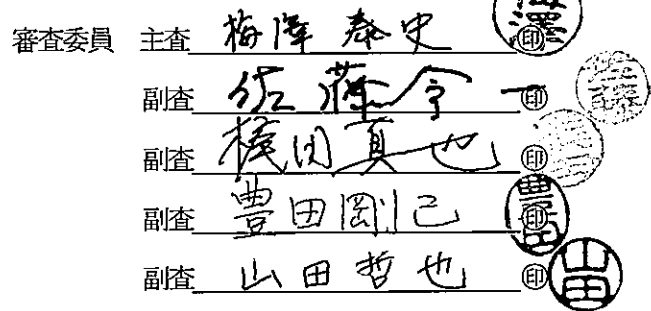 審査委員 主査 梅澤 泰史 ㊞ 梅澤
副査 佐藤 令一 ㊞ 佐藤
副査 横田真也 ㊞
副査 豊田剛己 ㊞ 豊田
副査 山田哲也 ㊞ 山田